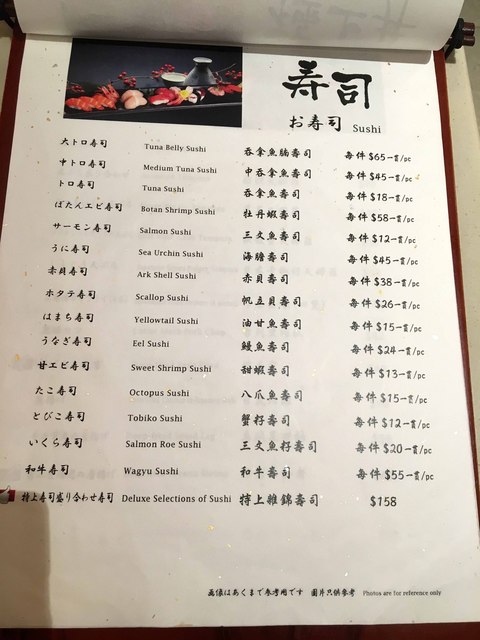 寿司
お寿司 Sushi
大トロ寿司 Tuna Belly Sushi 吞拿魚腩壽司 每件 $65一貫/pc
中トロ寿司 Medium Tuna Sushi 中吞拿魚壽司 每件 $45一貫/pc
トロ寿司 Tuna Sushi 吞拿魚壽司 每件 $18一貫/pc
ぼたんエビ寿司 Botan Shrimp Sushi 牡丹蝦壽司 每件 $58一貫/pc
サーモン寿司 Salmon Sushi 三文魚壽司 每件 $12一貫/pc
うに寿司 Sea Urchin Sushi 海膽壽司 每件 $45一貫/pc
赤貝寿司 Ark Shell Sushi 赤貝壽司 每件 $38一貫/pc
ホタテ寿司 Scallop Sushi 帆立貝壽司 每件 $26一貫/pc
はまち寿司 Yellowtail Sushi 油甘魚壽司 每件 $15一貫/pc
うなぎ寿司 Eel Sushi 鰻魚壽司 每件 $24一貫/pc
甘エビ寿司 Sweet Shrimp Sushi 甜蝦壽司 每件 $13一貫/pc
たこ寿司 Octopus Sushi 八爪魚壽司 每件 $15一貫/pc
とびこ寿司 Tobiko Sushi 蟹籽壽司 每件 $12一貫/pc
いくら寿司 Salmon Roe Sushi 三文魚籽壽司 每件 $20一貫/pc
和牛寿司 Wagyu Sushi 和牛壽司 每件 $55一貫/pc
特上寿司盛り合わせ寿司 Deluxe Selections of Sushi 特上雜錦壽司 $158
画像はあくまで参考用です 圖片只供參考 Photos are for reference only